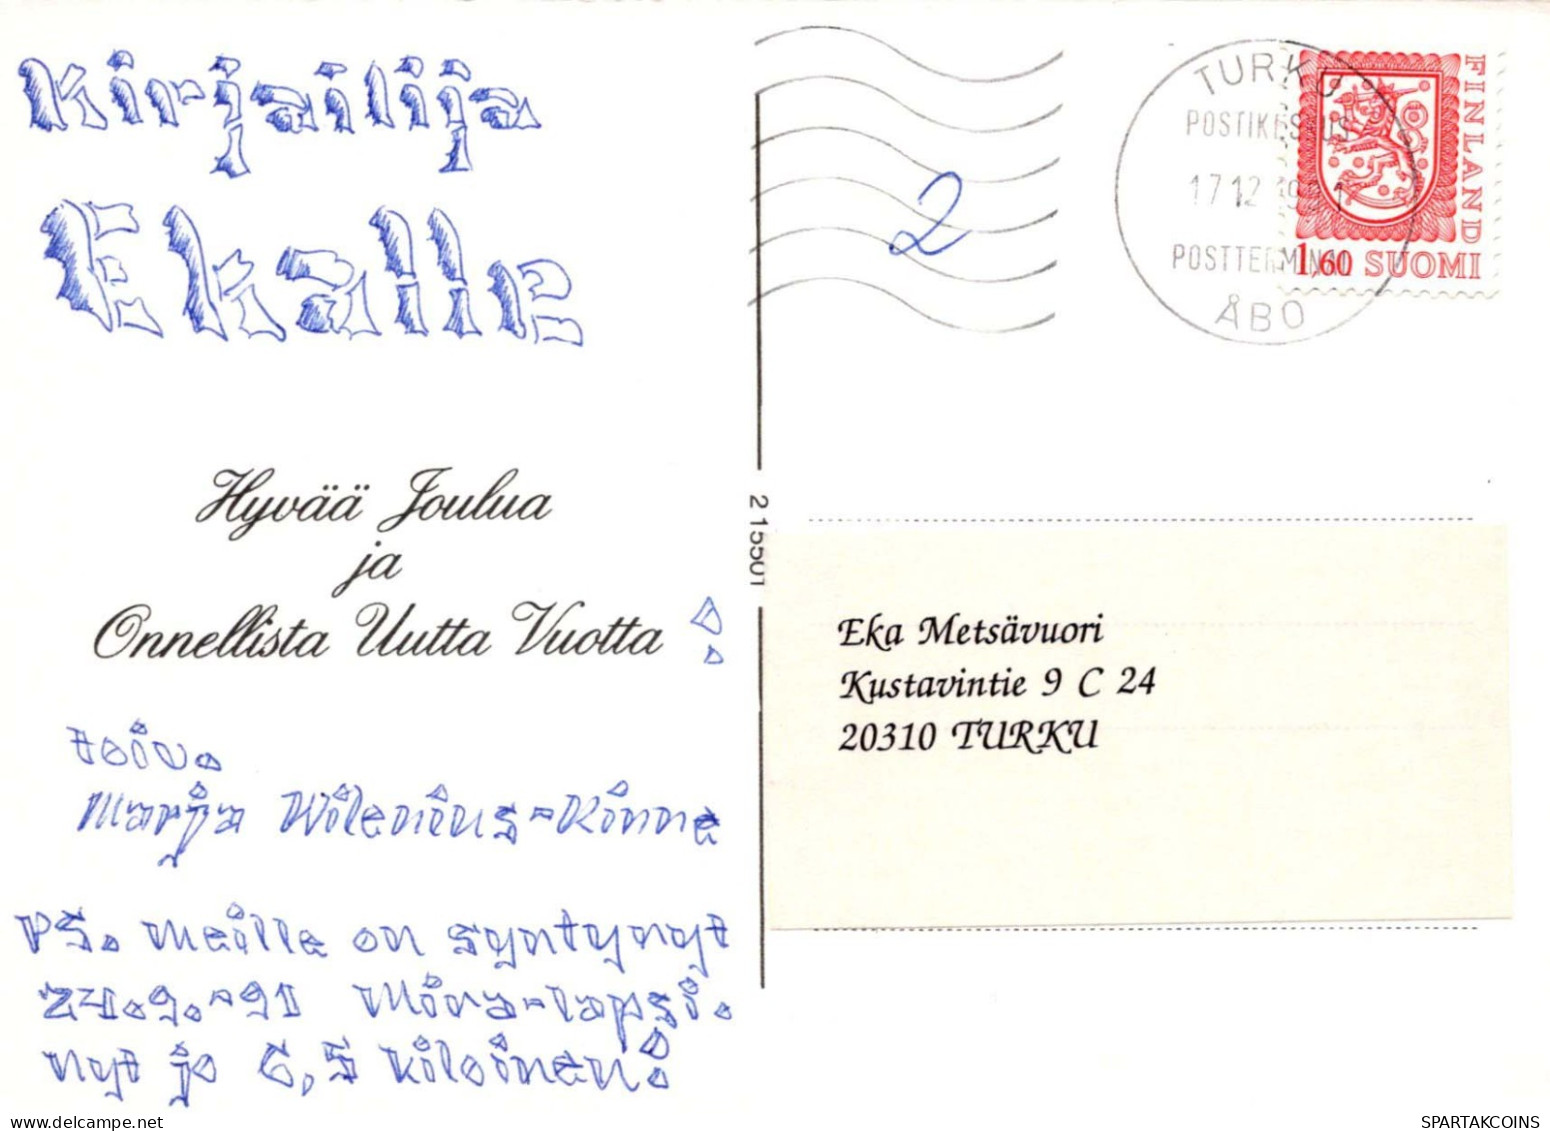 Kirjailija
Ekalle
Hyvää Joulua
ja
Onnellista Uutta Vuotta !
toiv.
Marja Wilenius-Rinne
PS. meille on syntynyt
24.9.-91 Miira-lapsi.
nyt jo 6,5 kiloinen!
2
2 15501
TURKU
POSTIKESKUS
17 12 1991
POSTTERMINAL
ÅBO
FINLAND
1,60 SUOMI
Eka Metsävuori
Kustavintie 9 C 24
20310 TURKU
SPARTAKCOINS